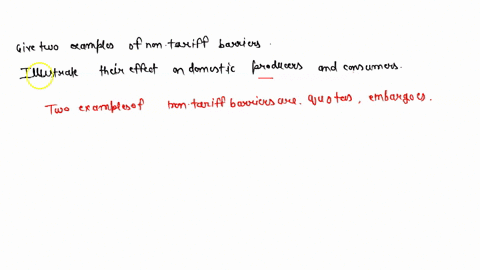 Give two examples of non-tariff barriers.
Illustrate their effect on domestic producers and consumers.
Two examples of non-tariff barriers are quotas, embargoes.